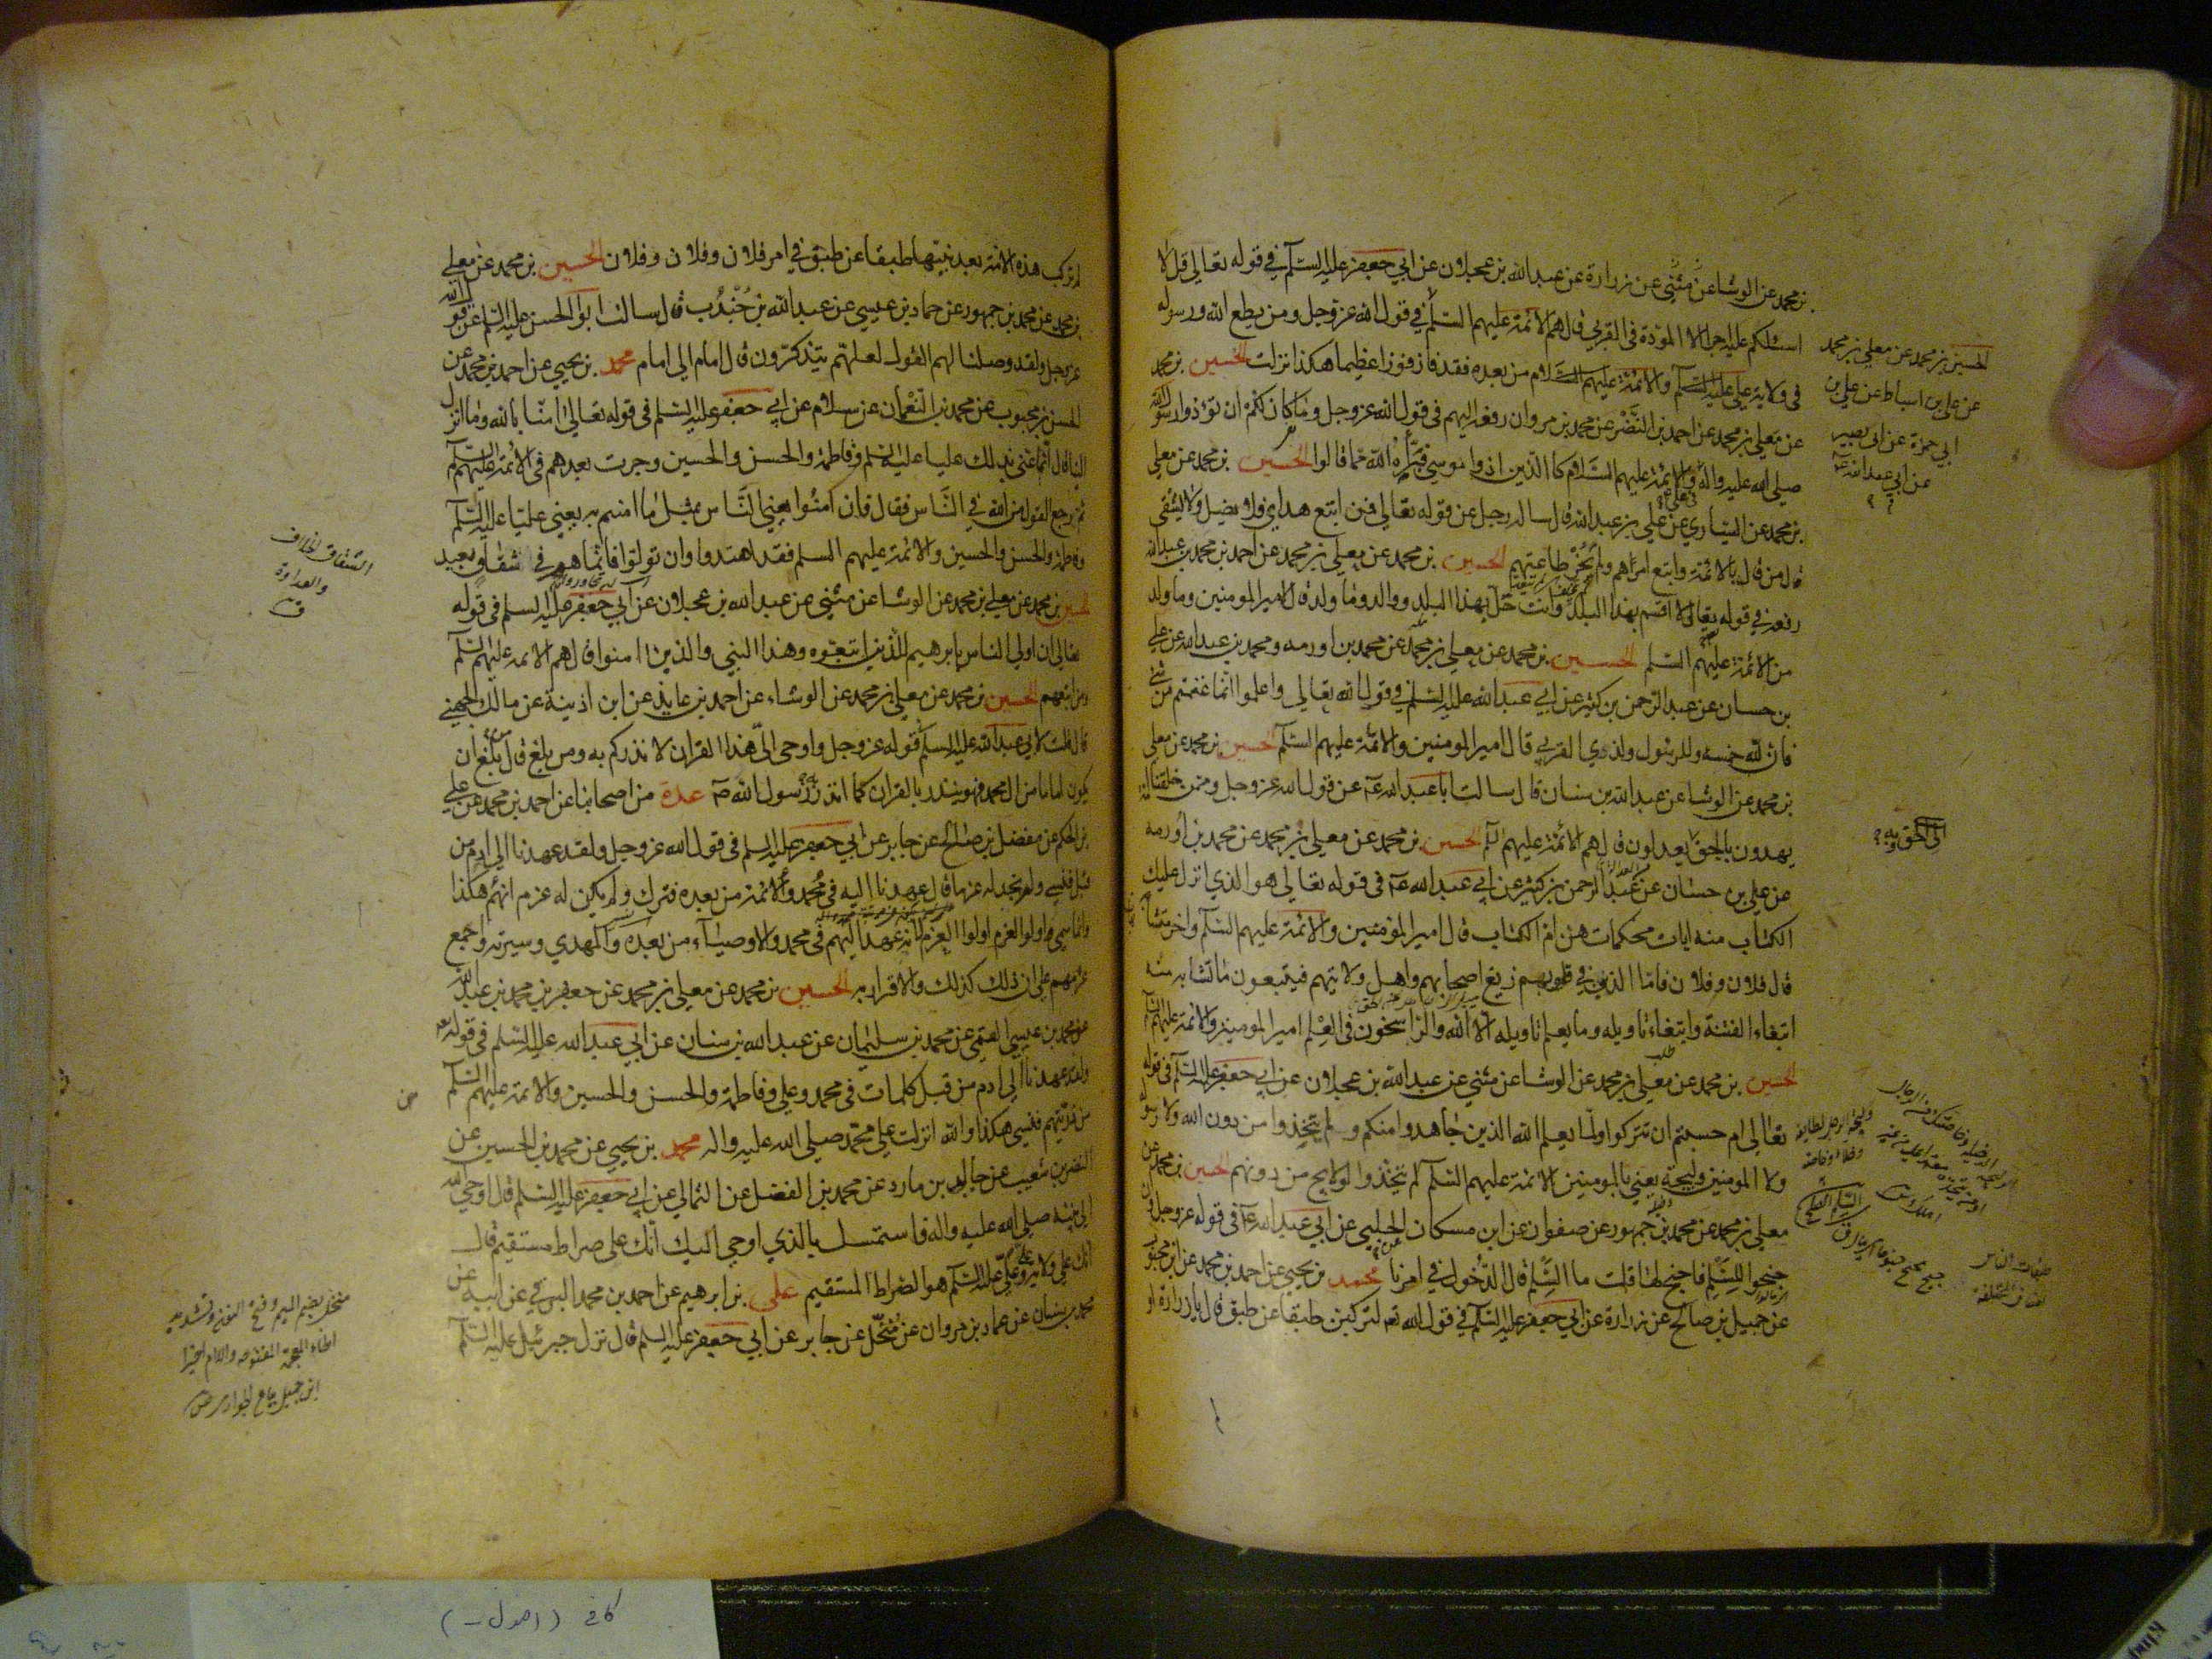 بن محمد عن الوشا عن مثنى عن زرارة عن عبد الله بن عجلان عن ابي جعفر عليه السلم في قوله تعالى قل لا
اسئلكم عليه اجرا الا المودة فى القربى قال هم الائمة عليهم السلم في قول الله عز وجل ومن يطع الله ورسوله
فى ولاية علي عليه السلم والائمة عليهم السلام من بعده فقد فاز فوزا عظيما هكذا نزلت الحسين بن محمد
عن معلى بن محمد عن احمد بن النضر عن محمد بن مروان رفعه اليهم فى قول الله عز وجل وما كان لكم ان تؤذوا رسول الله
صلى الله عليه واله والائمة عليهم السلام كالذين اذوا موسى فبرأه الله مما قالوا الحسين بن محمد عن معلى
بن محمد عن السياري عن علي بن عبد الله قال ساله رجل عن قوله تعالى فمن اتبع هداي فلا يضل ولا يشقى
قال من قال بالائمة واتبع امرهم ولم يجز طاعتهم الحسين بن محمد عن معلى بن محمد عن احمد بن محمد بن عبد الله
رفعه في قوله تعالى لا اقسم بهذا البلد وانت حل بهذا البلد ووالد وما ولد قال امير المومنين وما ولد
من الائمة عليهم السلم الحسين بن محمد عن معلى بن محمد عن محمد بن اورمه ومحمد بن عبد الله عن علي
بن حسان عن عبد الرحمن بن كثير عن ابي عبد الله عليه السلم في قول الله تعالى واعلموا انما غنمتم من شئ
فان لله خمسه وللرسول ولذي القربى قال امير المومنين والائمة عليهم السلم الحسين بن محمد عن معلى
بن محمد عن الوشا عن عبد الله بن سنان قال سالت ابا عبد الله عن قول الله عز وجل وممن خلقنا امة
يهدون بالحق وبه يعدلون قال هم الائمة عليهم السلم الحسين بن محمد عن معلى بن محمد عن محمد بن اورمه
عن علي بن حسان عن عبد الرحمن بن كثير عن ابي عبد الله فى قوله تعالى هو الذي انزل عليك
الكتاب منه ايات محكمات هن ام الكتاب قال امير المؤمنين والائمة عليهم السلم واخر متشابهات
قال فلان وفلان فاما الذين في قلوبهم زيغ اصحابهم واهل ولايتهم فيتبعون ما تشابه منه
ابتغاء الفتنة وابتغاء تاويله وما يعلم تاويله الا الله والراسخون فى العلم امير المومنين والائمة عليهم السلم
الحسين بن محمد عن معلى بن محمد عن الوشا عن مثنى عن عبد الله بن عجلان عن ابي جعفر عليه السلم فى قوله
تعالى ام حسبتم ان تتركوا ولما يعلم الله الذين جاهدوا منكم ولم يتخذوا من دون الله ولا رسوله
ولا المومنين وليجة يعني بالمومنين الائمة عليهم السلم لم يتخذوا الولايج من دونهم الحسين بن محمد عن
معلى بن محمد عن محمد بن جمهور عن صفوان عن ابن مسكان الحلبي عن ابي عبد الله فى قوله عز وجل وان
جنحوا للسلم فاجنح لها قلت ما السلم قال الدخول في امرنا محمد بن يحيى عن احمد بن محمد عن ابن محبوب
عن جميل بن صالح عن زرارة عن ابي جعفر عليه السلم في قول الله لتركبن طبقا عن طبق قال يا زرارة او
الحسين بن محمد عن معلى بن محمد
عن علي بن اسباط عن علي بن
ابي حمزة عن ابي بصير
عن ابي عبد الله
طبقات الناس
لم تركب هذه الامة بعد نبيها طبقا عن طبق في امر فلان وفلان وفلان الحسين بن محمد عن معلى
بن محمد عن محمد بن جمهور عن حماد بن عيسى عن عبد الله بن جندب قال سالت ابوالحسن عليه السلم عن قول الله
عز وجل ولقد وصلنا لهم القول لعلهم يتذكرون قال امام الى امام محمد بن يحيى عن احمد بن محمد عن
الحسن بن محبوب عن محمد بن النعمان عن سلام عن ابي جعفر عليه السلم فى قوله تعالى امنا بالله وما انزل
الينا قال انما عنى بذلك عليا عليه السلم وفاطمة والحسن والحسين وجرت بعدهم فى الائمة عليهم السلم
ثم يرجع القول من الله في الناس فقال فان امنوا يعني الناس بمثل ما امنتم به يعني عليا عليه السلم
وفاطمة والحسن والحسين والائمة عليهم السلم فقد اهتدوا وان تولوا فانما هم في شقاق بعيد
الحسين بن محمد عن معلى بن محمد عن الوشا عن مثنى عن عبد الله بن عجلان عن ابي جعفر عليه السلم فى قوله
تعالى ان اولى الناس بابرهيم للذين اتبعوه وهذا النبي والذين امنوا قال هم الائمة عليهم السلم
ومن اتبعهم الحسين بن محمد عن معلى بن محمد عن الوشاء عن احمد بن عايذ عن ابن اذينة عن مالك الجهني
قال قلت لابي عبد الله عليه السلم قوله عز وجل واوحى الى هذا القران لانذركم به ومن بلغ قال من بلغ ان
يكون اماما من ال محمد فهو ينذر بالقران كما انذر رسول الله عدة من اصحابنا عن احمد بن محمد عن علي
بن الحكم عن مفضل بن صالح عن جابر عن ابي جعفر عليه السلم فى قول الله عز وجل ولقد عهدنا الى ادم من
قبل فنسي ولم نجد له عزما قال عهدنا اليه في محمد والائمة من بعده فترك ولم يكن له عزم انهم هكذا
وانما سمي اولوا العزم اولوا العزم لانه عهد اليهم فى محمد والاوصياء من بعده والمهدي وسيرته واجمع
عزمهم على ان ذلك كذلك والاقرار به الحسين بن محمد عن معلى بن محمد عن جعفر بن محمد بن عبيد الله
عن محمد بن عيسى القمي عن محمد بن سليمان عن عبد الله بن سنان عن ابي عبد الله عليه السلم فى قوله
ولقد عهدنا الى ادم من قبل كلمات فى محمد وعلي وفاطمة والحسن والحسين والائمة عليهم السلم
من ذريتهم فنسي هكذا والله انزلت على محمد صلى الله عليه واله محمد بن يحيى عن محمد بن الحسين عن
النضر بن شعيب عن خالد بن مارد عن محمد بن الفضل عن الثمالي عن ابي جعفر عليه السلم قال اوحى الله
الى نبيه صلى الله عليه واله فاستمسك بالذي اوحي اليك انك على صراط مستقيم قال
انك على ولاية علي وعلي عليه السلم هو الصراط المستقيم علي بن ابرهيم عن احمد بن محمد البرقي عن ابيه عن
محمد بن سنان عن عمار بن مروان عن منخل عن جابر عن ابي جعفر عليه السلم قال نزل جبرئيل عليه السلم
الشقاق الخلاف
والعداوة
ق
منخل بضم الميم وفتح النون وتشديد
الخاء المعجمة المفتوحة واللام اخيرا
ابن جميل بياع الجواري
كافى (اصول -)